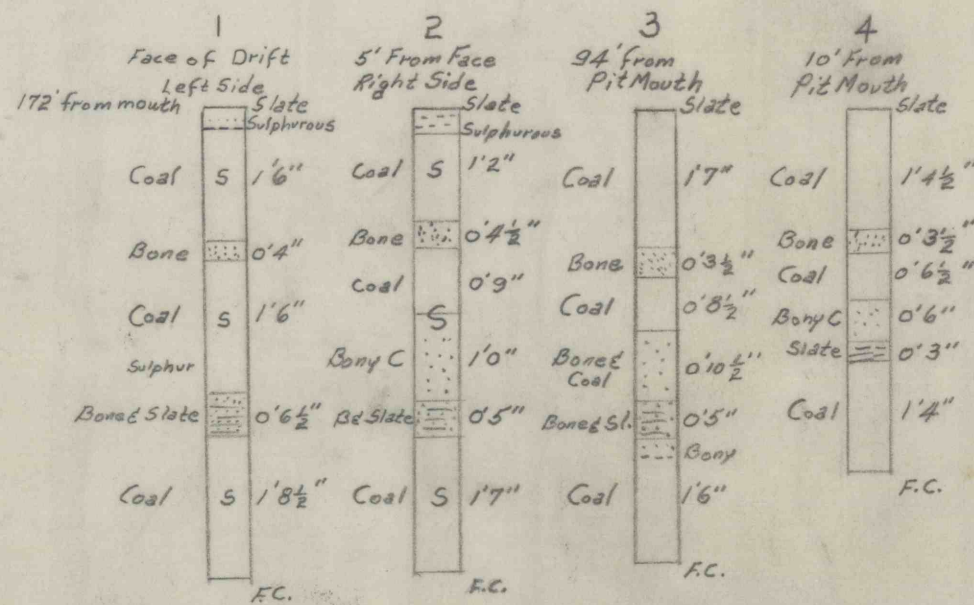 1
Face of Drift
Left Side
172' from mouth
Slate
Sulphurous
Coal S 1'6"
Bone 0'4"
Coal S 1'6"
Sulphur
Bone & Slate 0'6½"
Coal S 1'8½"
F.C.
2
5' From Face
Right Side
Slate
Sulphurous
Coal S 1'2"
Bone 0'4½"
Coal 0'9"
S
Bony C 1'0"
B & Slate 0'5"
Coal S 1'7"
F.C.
3
94' from
Pit Mouth
Slate
Coal 1'7"
Bone 0'3½"
Coal 0'8½"
Bone &
Coal 0'10½"
Bone & Sl. 0'5"
Bony
Coal 1'6"
F.C.
4
10' From
Pit Mouth
Slate
Coal 1'4½"
Bone 0'3½"
Coal 0'6½"
Bony C 0'6"
Slate 0'3"
Coal 1'4"
F.C.